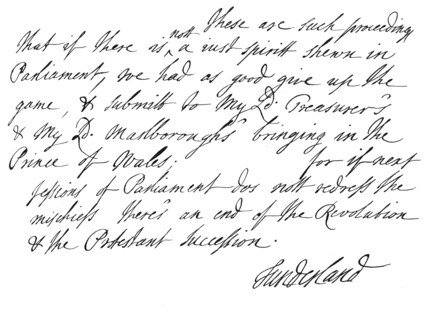 These are such proceedings
that if there is nott a iust spiritt shewn in
Parliament, we had as good give up the
game, & submitt to My Ld. Treasurer's
& My Ld. Marlborough's bringing in the
Prince of Wales; for if next
sessions of Parliament dos nott redress the
mischiefs there's an end of the Revolution
& the Protestant Succession.
Sunderland